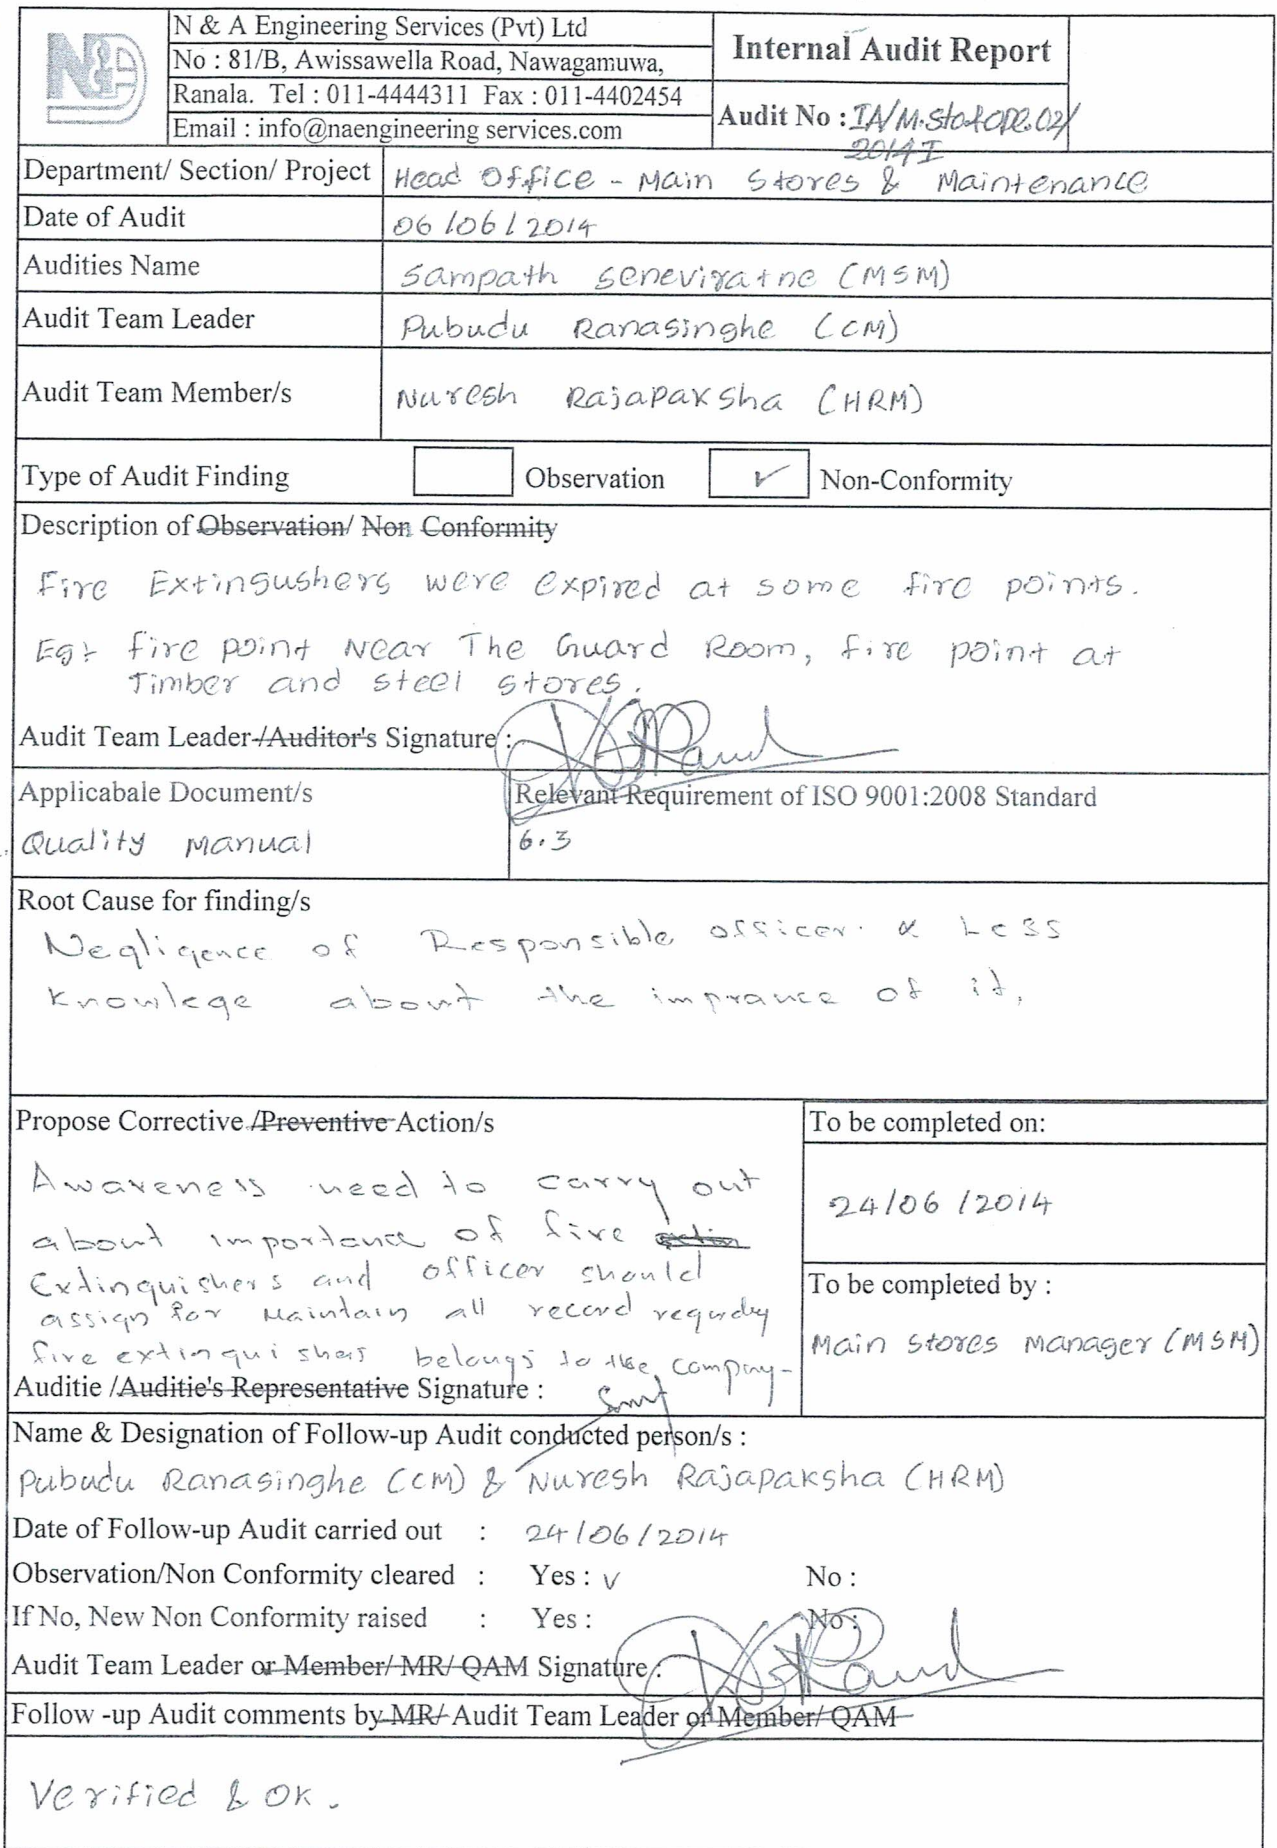 N & A Engineering Services (Pvt) Ltd
No : 81/B, Awissawella Road, Nawagamuwa,
Ranala. Tel : 011-4444311 Fax : 011-4402454
Email : info@naengineering services.com
Internal Audit Report
Audit No : IA/M.Sto&OPE.02/
2014 I
Department/ Section/ Project Head Office - Main Stores & Maintenance
Date of Audit 06/06/2014
Audities Name Sampath Seneviratne (MSM)
Audit Team Leader Pubudu Ranasinghe (CM)
Audit Team Member/s Nuresh Rajapaksha (HRM)
Type of Audit Finding Observation ✓ Non-Conformity
Description of Observation/ Non Conformity
Fire Extingushers were expired at some fire points.
Eg:- fire point Near The Guard Room, fire point at
Timber and steel stores.
Audit Team Leader /Auditor's Signature :
Applicabale Document/s
Quality Manual
Relevant Requirement of ISO 9001:2008 Standard
6.3
Root Cause for finding/s
Negligence of Responsible officer. & Less
Knowlege about the imprance of it.
Propose Corrective /Preventive Action/s
Awareness need to carry out
about importance of fire
Extinquishers and officer should
assign for Maintain all record regurdy
fire extinquishers belongs to the company-
Auditie /Auditie's Representative Signature :
To be completed on:
24/06/2014
To be completed by :
Main Stores Manager (MSM)
Name & Designation of Follow-up Audit conducted person/s :
Pubudu Ranasinghe (CM) & Nuresh Rajapaksha (HRM)
Date of Follow-up Audit carried out : 24/06/2014
Observation/Non Conformity cleared : Yes : ✓ No :
If No, New Non Conformity raised : Yes : No :
Audit Team Leader or Member/ MR/ QAM Signature :
Follow -up Audit comments by MR/ Audit Team Leader or Member/ QAM
Verified & OK.